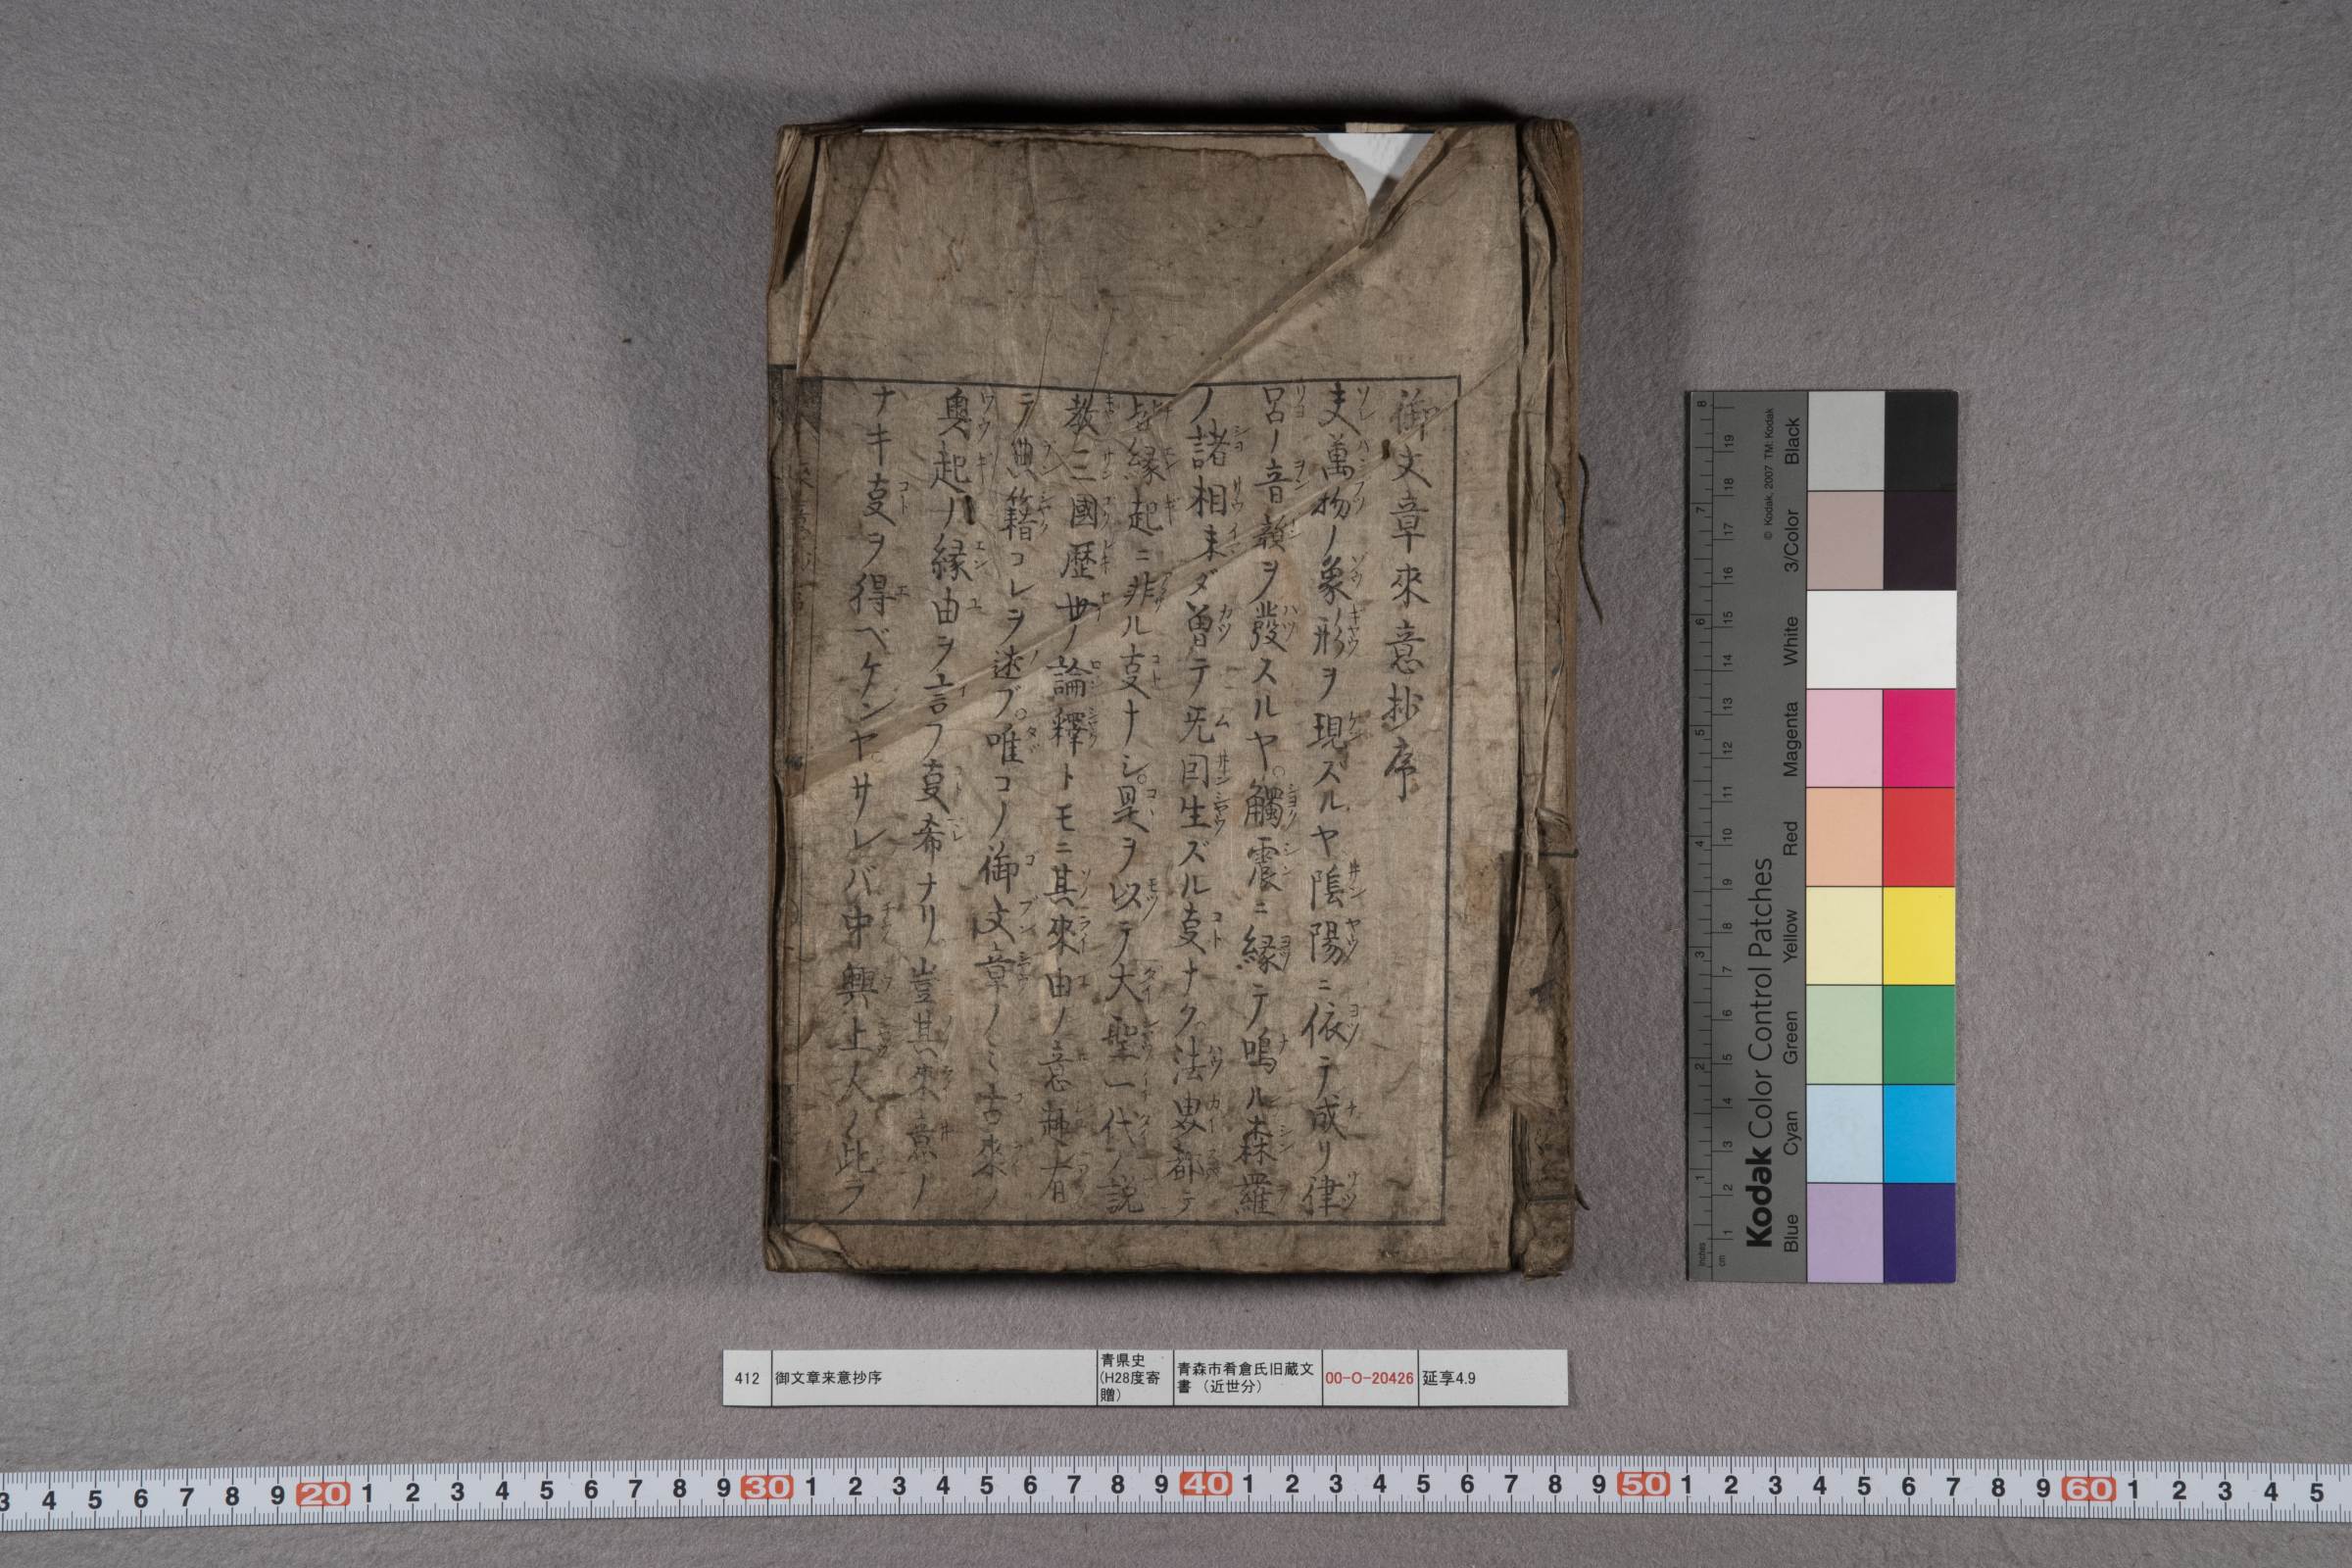 御文章來意抄序
夫萬物ノ象形ヲ現スルヤ陰陽ニ依テ成リ律
呂ノ音韻ヲ發スルヤ。觸震ニ縁テ鳴ル森羅
ノ諸相未ダ曽テ无因生ズル叓ナク。法界都テ
皆縁起ニ非ル叓ナシ。是ヲ以テ大聖一代ノ説
教三國歴世ノ論釋トモニ其來由ノ意趣有
テ典籍コレヲ述ブ。唯コノ御文章ノミ古來ノ
興起ハ縁由ヲ言フ叓希ナリ。豈其來意ノ
ナキ叓ヲ得ベケンヤ。サレバ中興上人ノ此ヲ
412
御文章来意抄序
青県史
(H28度寄
贈)
青森市肴倉氏旧蔵文
書（近世分）
00-O-20426
延享4.9
Kodak Color Control Patches
© Kodak, 2007 TM: Kodak
Blue Cyan Green Yellow Red Magenta White 3/Color Black
inches 1 2 3 4 5 6 7 8
cm 1 2 3 4 5 6 7 8 9 10 11 12 13 14 15 16 17 18 19
3 4 5 6 7 8 9 20 1 2 3 4 5 6 7 8 9 30 1 2 3 4 5 6 7 8 9 40 1 2 3 4 5 6 7 8 9 50 1 2 3 4 5 6 7 8 9 60 1 2 3 4 5